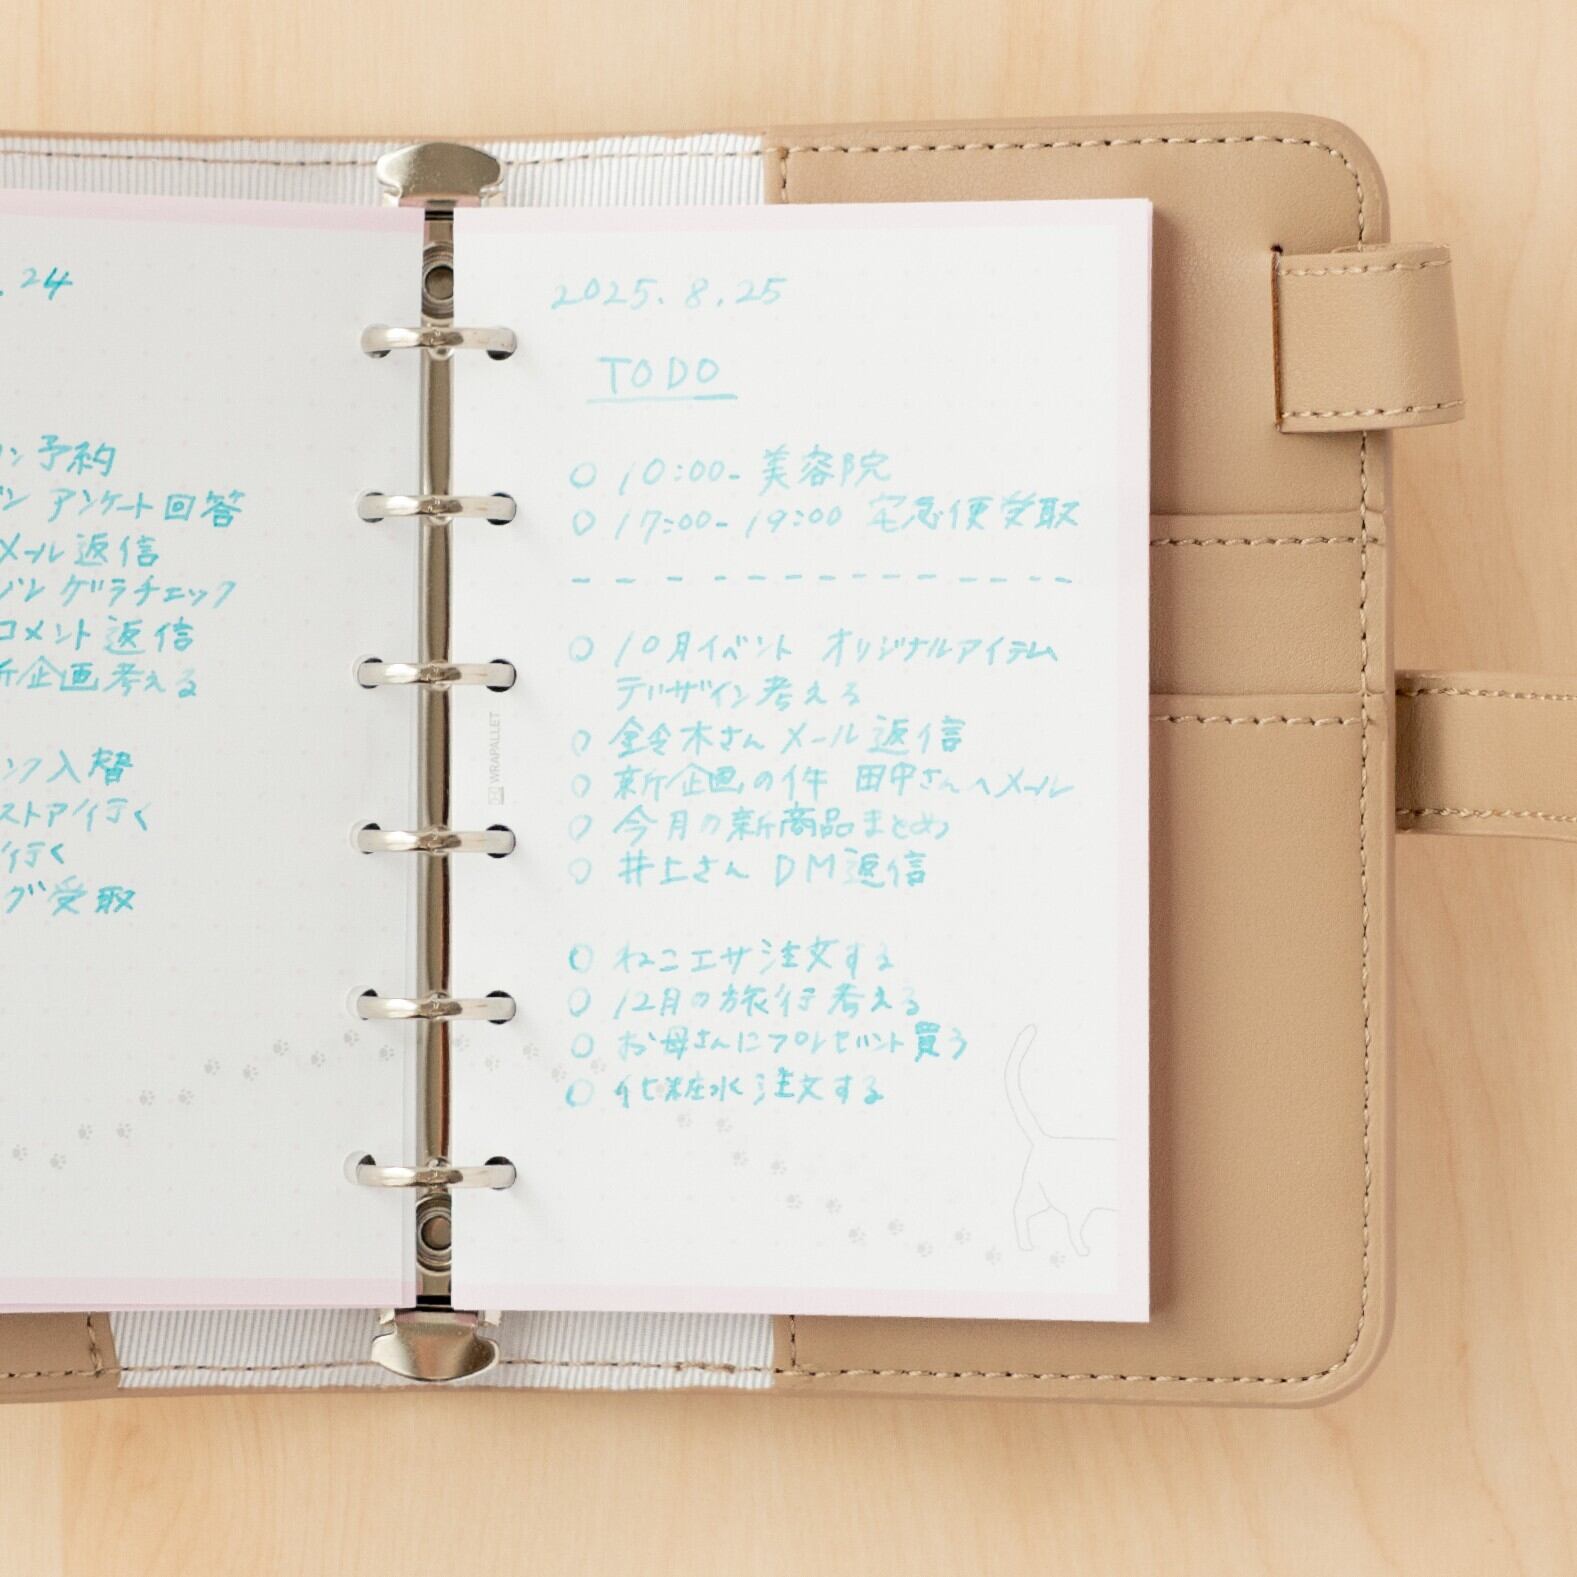 .24
ン予約
ン アンケート回答
メール返信
ゾン ゲラチェック
コメント返信
新企画考える
ンク入替
ストア行く
行く
グ受取
WRAPALLET
2025.8.25
TODO
○ 10:00- 美容院
○ 17:00-19:00 宅急便受取
○ 10月イベント オリジナルアイテム
デザイン考える
○ 鈴木さん メール返信
○ 新企画の件 田中さんへメール
○ 今月の新商品まとめ
○ 井上さん DM返信
○ ねこエサ注文する
○ 12月の旅行考える
○ お母さんにプレゼント買う
○ 化粧水注文する